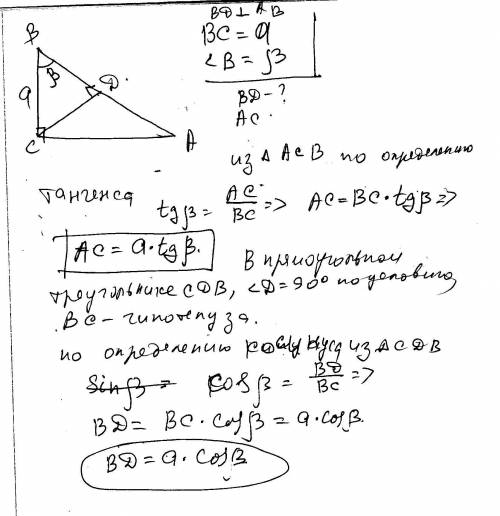 BD ⊥ AB
BC = a
∠B = β
BD - ?
AC.
B
β
a
D
C
A
из Δ ACB по определению
тангенса
tgβ = AC/BC => AC = BC · tgβ =>
AC = a · tgβ. В прямоугольном
треугольнике CDB, ∠D = 90° по условию,
BC - гипотенуза.
по определению косинуса из ΔCDB
Sinβ = cosβ = BD/BC =>
BD = BC · cosβ = a · cosβ.
BD = a · cosβ